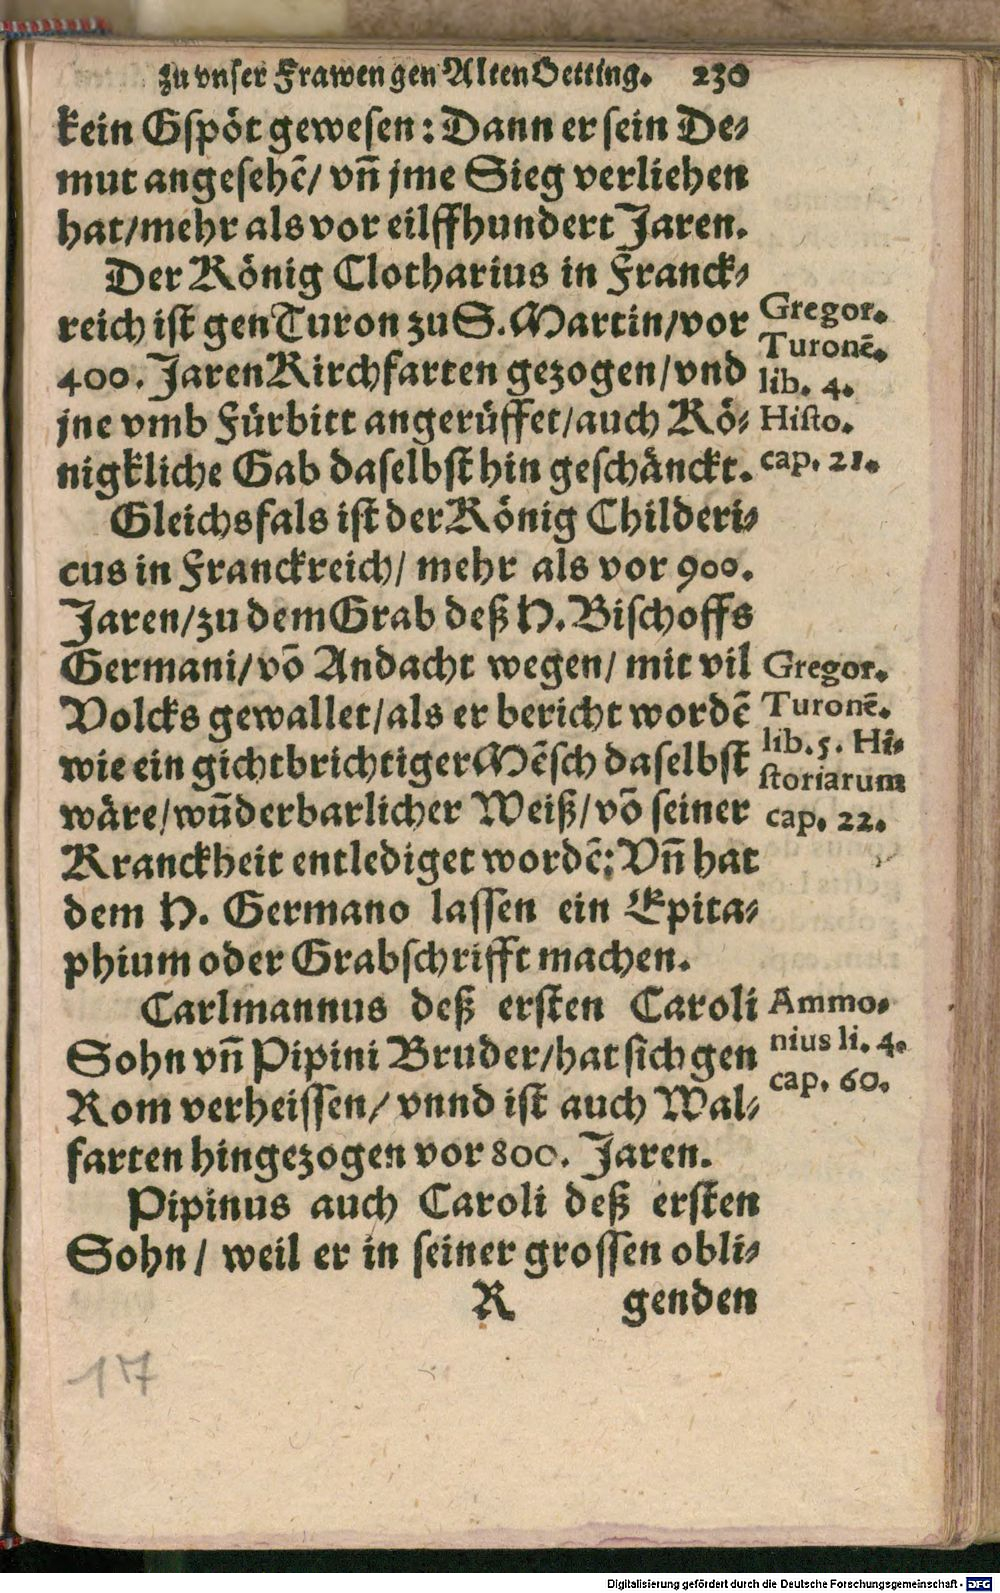 zu vnser Frawen gen Alten Oetting. 230
kein Gspöt gewesen: Dann er sein De⸗
mut angesehẽ/ vñ jme Sieg verliehen
hat/mehr als vor eilffhundert Jaren.
Der König Clotharius in Franck⸗
reich ist gen Turon zu S. Martin/vor
400. Jaren Kirchfarten gezogen/vnd
jne vmb Fürbitt angerüffet/auch Kö⸗
nigkliche Gab daselbst hin geschänckt.
Gregor.
Turonẽ.
lib. 4.
Histo.
cap. 21.
Gleichsfals ist der König Childeri⸗
cus in Franckreich/ mehr als vor 900.
Jaren/zu dem Grab deß H. Bischoffs
Germani/võ Andacht wegen/ mit vil
Volcks gewallet/als er bericht wordẽ
wie ein gichtbrichtiger Mẽsch daselbst
wäre/wũderbarlicher Weiß/võ seiner
Kranckheit entlediget wordẽ: Vñ hat
dem H. Germano lassen ein Epita⸗
phium oder Grabschrifft machen.
Gregor.
Turonẽ.
lib. 5. Hi⸗
storiarum
cap. 22.
Carlmannus deß ersten Caroli
Sohn vñ Pipini Bruder/hat sich gen
Rom verheissen/ vnnd ist auch Wal⸗
farten hingezogen vor 800. Jaren.
Ammo⸗
nius li. 4.
cap. 60.
Pipinus auch Caroli deß ersten
Sohn/ weil er in seiner grossen obli⸗
R genden
17
Digitalisierung gefördert durch die Deutsche Forschungsgemeinschaft - DFG